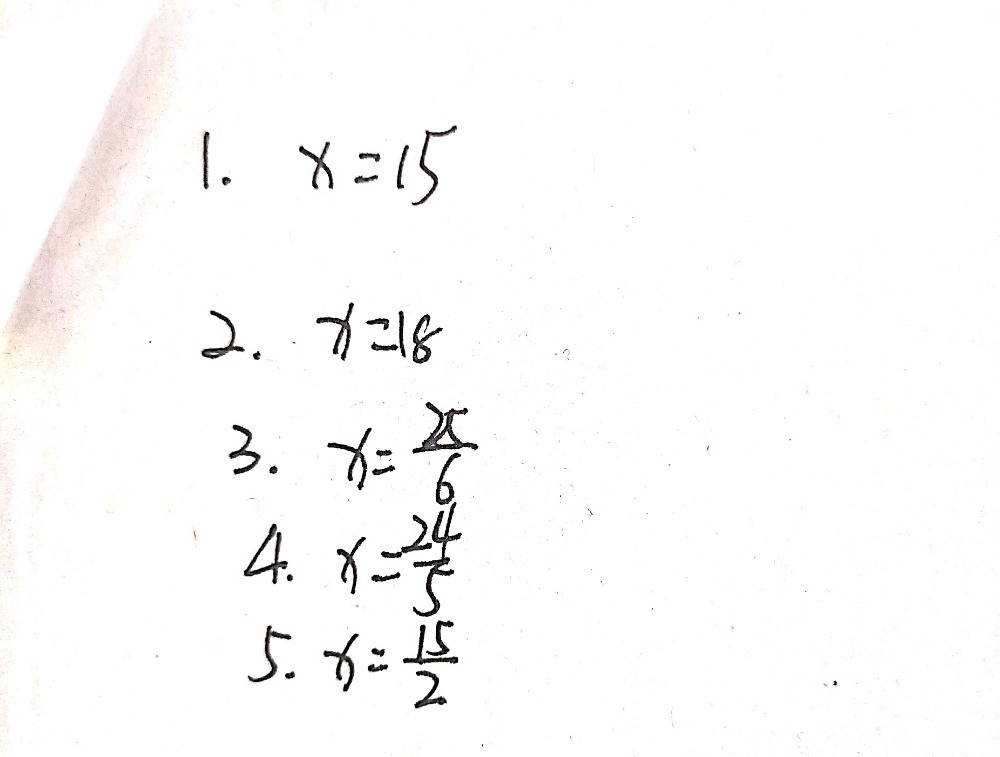 1. x=15
2. x=18
3. x=25/6
4. x=24/5
5. x=15/2